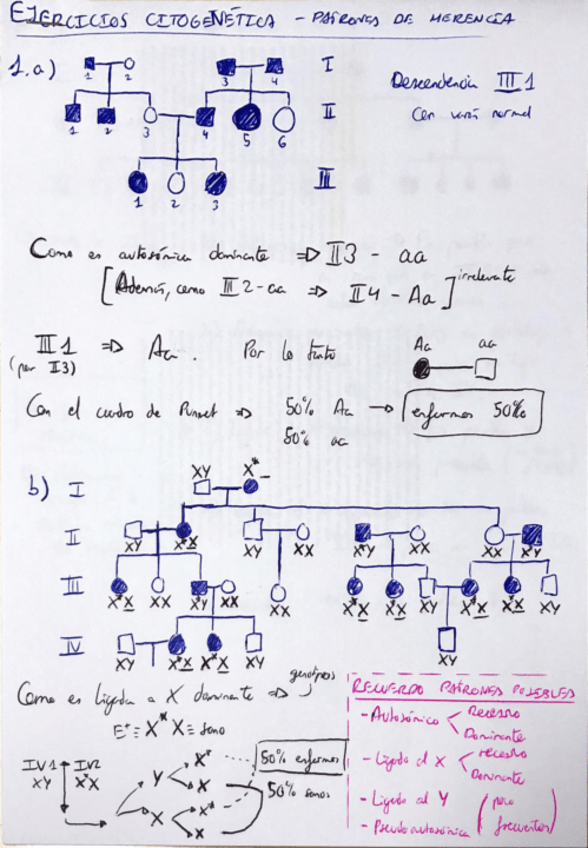 EJERCICIOS CITOGENÉTICA - PATRONES DE HERENCIA
1.a)
1 2 3 4 I
Descendencia III 1
Con varón normal
1 2 3 4 5 6 II
1 2 3 III
Como es autosómica dominante => II3 - aa
[Además, como III2 - aa => II4 - Aa] irrelevante
III1 => Aa. Por lo tanto
(por II3)
Aa aa
Con el cuadro de Punset => 50% Aa → enfermos 50%
50% aa
b) I
XY X*_
II
XY X*X XY XX X*Y XX XX X*Y
III
X*X XX X*Y XX XX X*X X*X XY X*X X*X XY
IV
XY X*X X*X XY XY
Como es ligada a X dominante => genotipos
E*≡X* X≡sano
IV1 IV2
XY X*X
Y X* X
X X* X
50% enfermos
50% sanos
RECUERDO PATRONES POSIBLES
- Autosómico < Recesivo
Dominante
- Ligado al X < recesivo
Dominante
- Ligado al Y (poco
- Pseudoautosómica frecuentes)